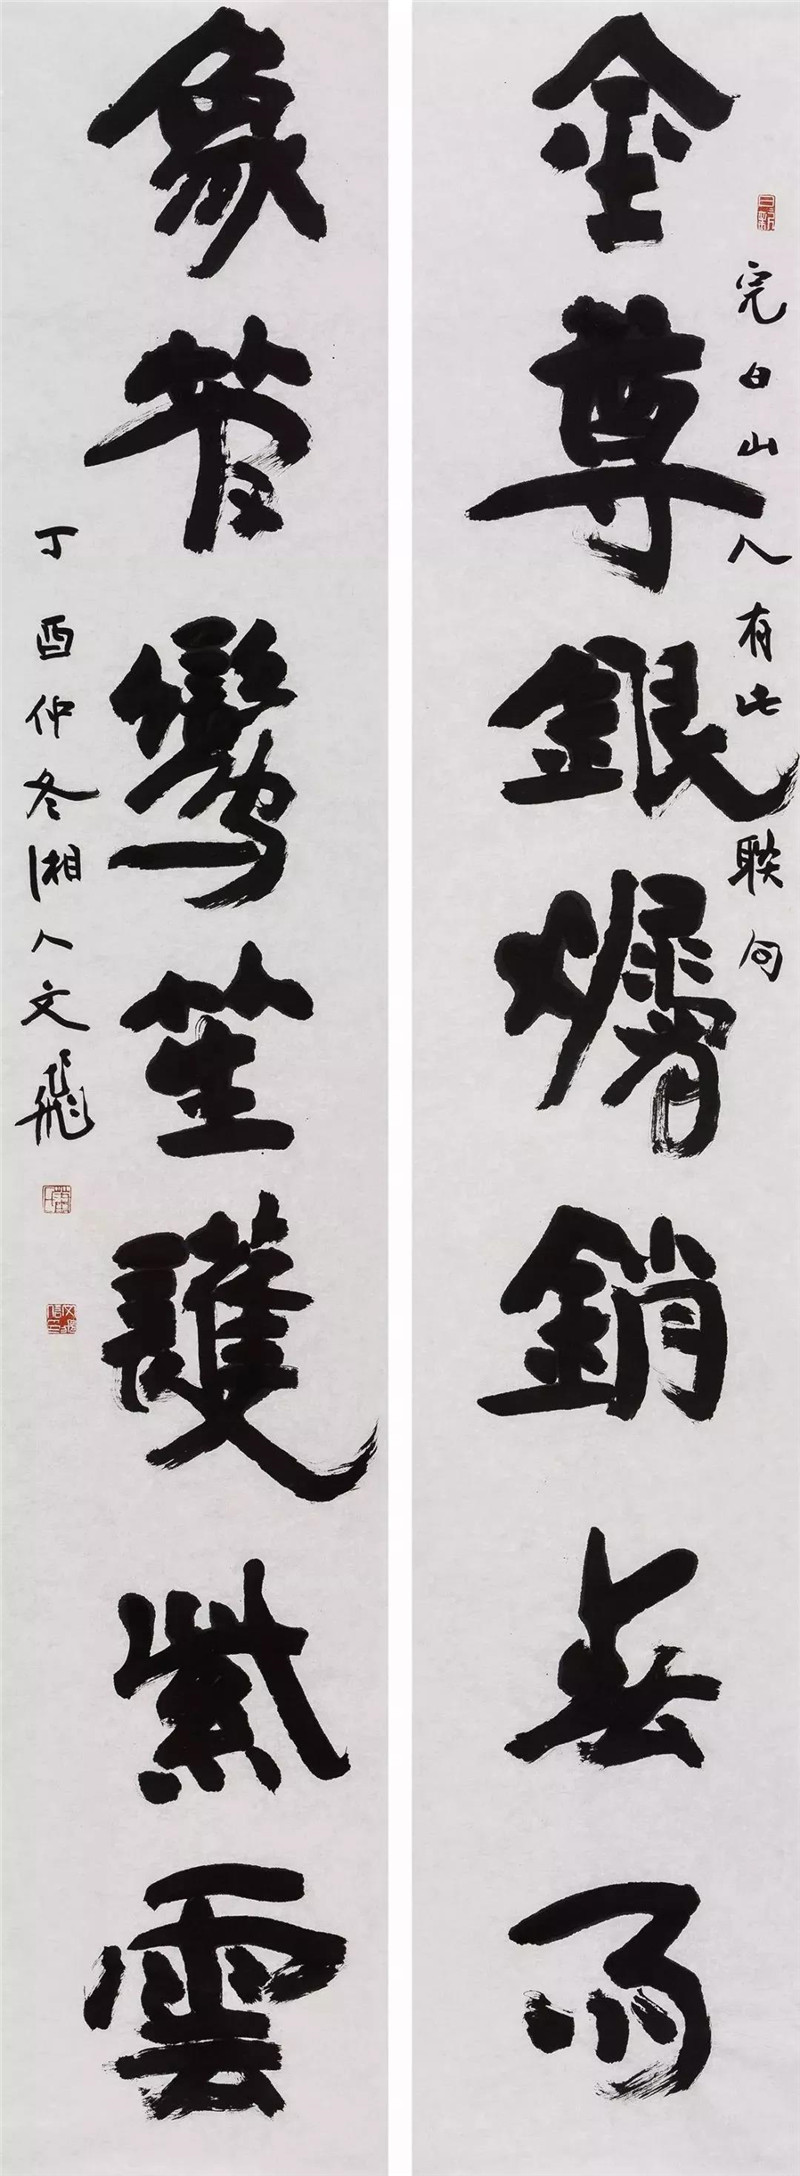 日新
完白山人有此联句
金尊銀爥銷春雨
象管鸞笙護紫雲
丁酉仲冬湘人文飛